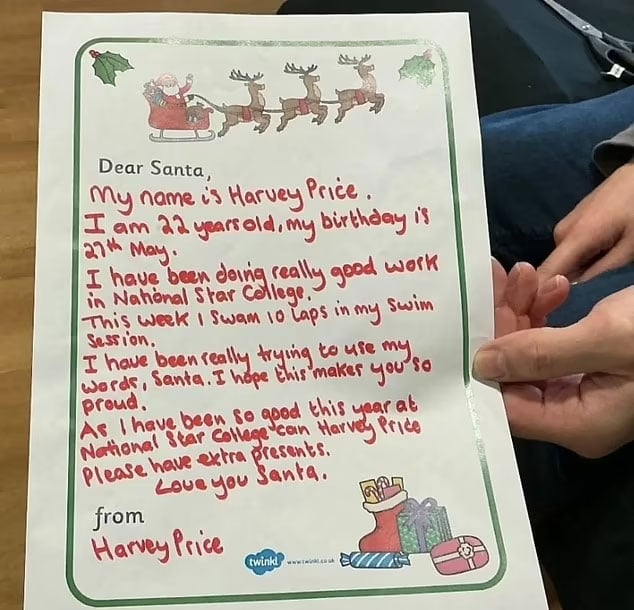 Dear Santa,
My name is Harvey Price.
I am 22 years old, my birthday is
27th May.
I have been doing really good work
in National Star College.
This week I swam 10 laps in my swim
session.
I have been really trying to use my
words, Santa. I hope this makes you so
proud.
As I have been so good this year at
National Star College can Harvey Price
Please have extra presents.
Love you Santa.
from
Harvey Price
twinkl www.twinkl.co.uk